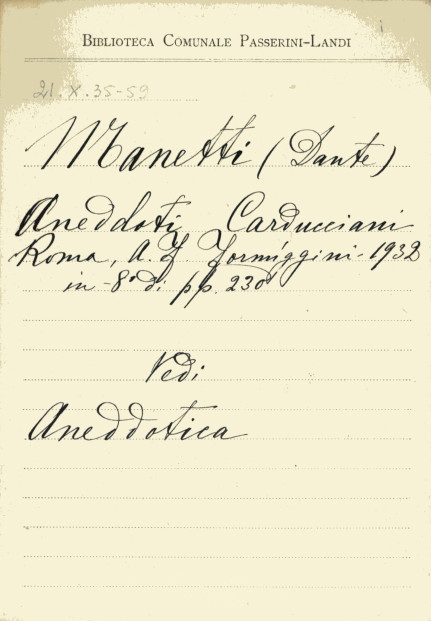 BIBLIOTECA COMUNALE PASSERINI-LANDI
21.X.35-59
Manetti (Dante)
Aneddoti Carducciani
Roma, A. F. Formiggini - 1932
in - 8° di pp. 230
Vedi
Aneddotica